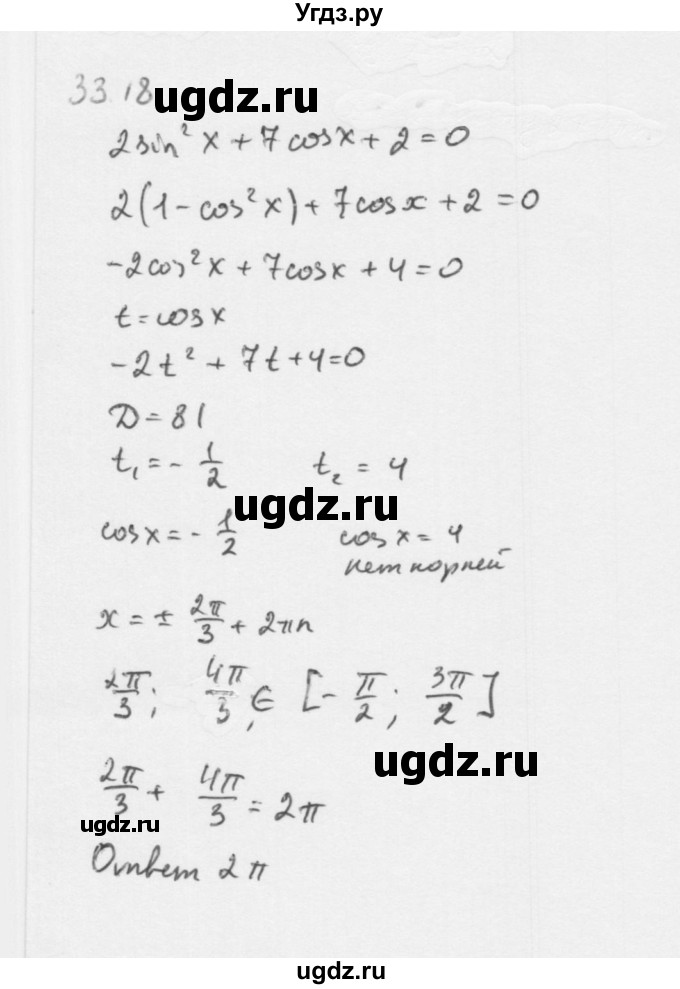 Угдз.ру
33.18
ugdz.ru
2sin²x + 7cosx + 2 = 0
2(1 - cos²x) + 7cosx + 2 = 0
-2cos²x + 7cosx + 4 = 0
t = cosx
-2t² + 7t + 4 = 0
D = 81
t₁ = - 1/2 t₂ = 4
ugdz.ru
cosx = - 1/2 cosx = 4
нет корней
x = ± 2π/3 + 2πn
2π/3; 4π/3, ∈ [- π/2; 3π/2]
ugdz.ru
2π/3 + 4π/3 = 2π
ugdz.ru
Ответ 2π
ugdz.ru